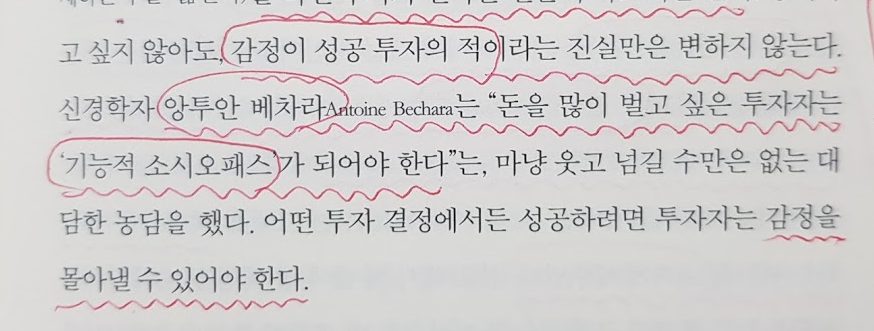 고 싶지 않아도, 감정이 성공 투자의 적이라는 진실만은 변하지 않는다.
신경학자 앙투안 베차라Antoine Bechara는 “돈을 많이 벌고 싶은 투자자는
‘기능적 소시오패스’가 되어야 한다”는, 마냥 웃고 넘길 수만은 없는 대
담한 농담을 했다. 어떤 투자 결정에서든 성공하려면 투자자는 감정을
몰아낼 수 있어야 한다.